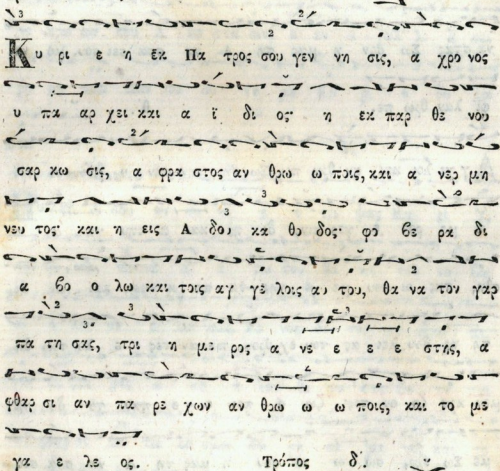 Κυ ρι ε η εκ Πα τρος σου γεν νη σις, α χρο νος
υ πα αρ χει και α ϊ δι ος· η εκ παρ θε νου
σαρ κω σις, α φρα στος αν θρω ω ποις, και α νερ μη
νευ τος· και η εις Α δου κα θο δος· φο βε ρα δι
α βο ο λω και τοις αγ γε λοις αυ του, θα να τον γαρ
πα τη σας, τρι η με ρος α νε ε ε ε στης, α
φθαρ σι αν πα ρε χων αν θρω ω ω ω ποις, και το με
γα ε λε ος. Τρόπος δ΄.